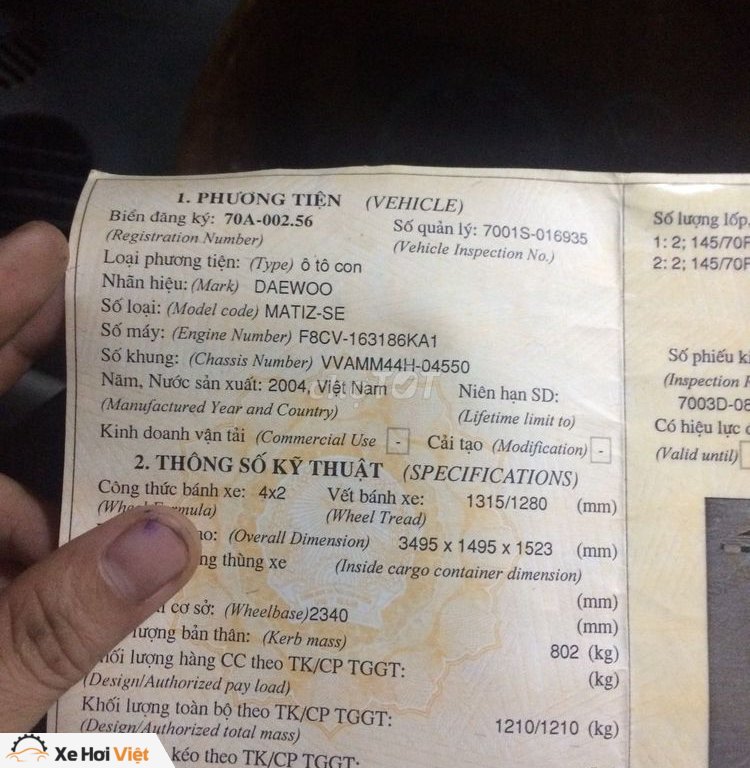 1. PHƯƠNG TIỆN (VEHICLE)
Biển đăng ký: 70A-002.56 Số quản lý: 7001S-016935
(Registration Number) (Vehicle Inspection No.)
Loại phương tiện: (Type) ô tô con
Nhãn hiệu: (Mark) DAEWOO
Số loại: (Model code) MATIZ-SE
Số máy: (Engine Number) F8CV-163186KA1
Số khung: (Chassis Number) VVAMM44H-04550
Năm, Nước sản xuất: 2004, Việt Nam Niên hạn SD:
(Manufactured Year and Country) (Lifetime limit to)
Kinh doanh vận tải (Commercial Use - Cải tạo (Modification) -
2. THÔNG SỐ KỸ THUẬT (SPECIFICATIONS)
Công thức bánh xe: 4x2 Vết bánh xe: 1315/1280 (mm)
(Wheel Formula) (Wheel Tread)
(Overall Dimension) 3495 x 1495 x 1523 (mm)
thùng xe (Inside cargo container dimension)
(mm)
cơ sở: (Wheelbase) 2340 (mm)
lượng bản thân: (Kerb mass) 802 (kg)
Khối lượng hàng CC theo TK/CP TGGT: (kg)
(Design/Authorized pay load)
Khối lượng toàn bộ theo TK/CP TGGT: 1210/1210 (kg)
(Design/Authorized total mass)
kéo theo TK/CP TGGT:
Số lượng lốp,
1: 2; 145/70R
2: 2; 145/70R
Số phiếu
(Inspection
7003D-08
Có hiệu lực
(Valid until)
Xe Hơi Việt